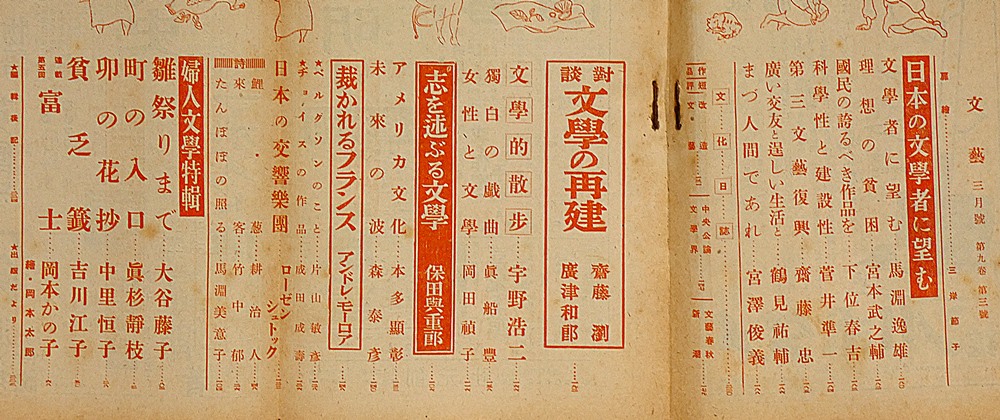 文藝 三月號 第九卷 第三號
扉繪……三岸節子
日本の文學者に望む
文學者に望む……馬淵逸雄
理想の貧困……宮本武之輔
國民の誇るべき作品を……下位春吉
科學性と建設性……菅井準一
第三文藝復興……齋藤忠
廣い交友と逞しい生活と……鶴見祐輔
まづ人間であれ……宮澤俊義
文化日誌
作品短評
改造
文藝
中央公論
文學界
文藝春秋
新潮
對談 文學の再建 齋藤瀏 廣津和郎
文學的散步……宇野浩二
獨白の戯曲……眞船豐
女性と文學……岡田禎子
志を述ぶる文學 保田與重郎
アメリカ文化……本多顯彰
未來の波……森泰彦
裁かれるフランス アンドレ・モーロア
★ベルグソンのこと……片山敏彦
★チョイスの作品……成田成壽
日本の交響樂團……ローゼンシュトック
詩
鯉……葱耕治人
來客……竹中郁
たんぽぽの照る……馬淵美意子
婦人文學特輯
雛祭りまで……大谷藤子
町の入口……眞杉靜枝
卯の花抄……中里恒子
貧乏籤……吉川江子
連載第五回 富士……岡本かの子
繪・岡本太郎
★編輯後記
★出版だより